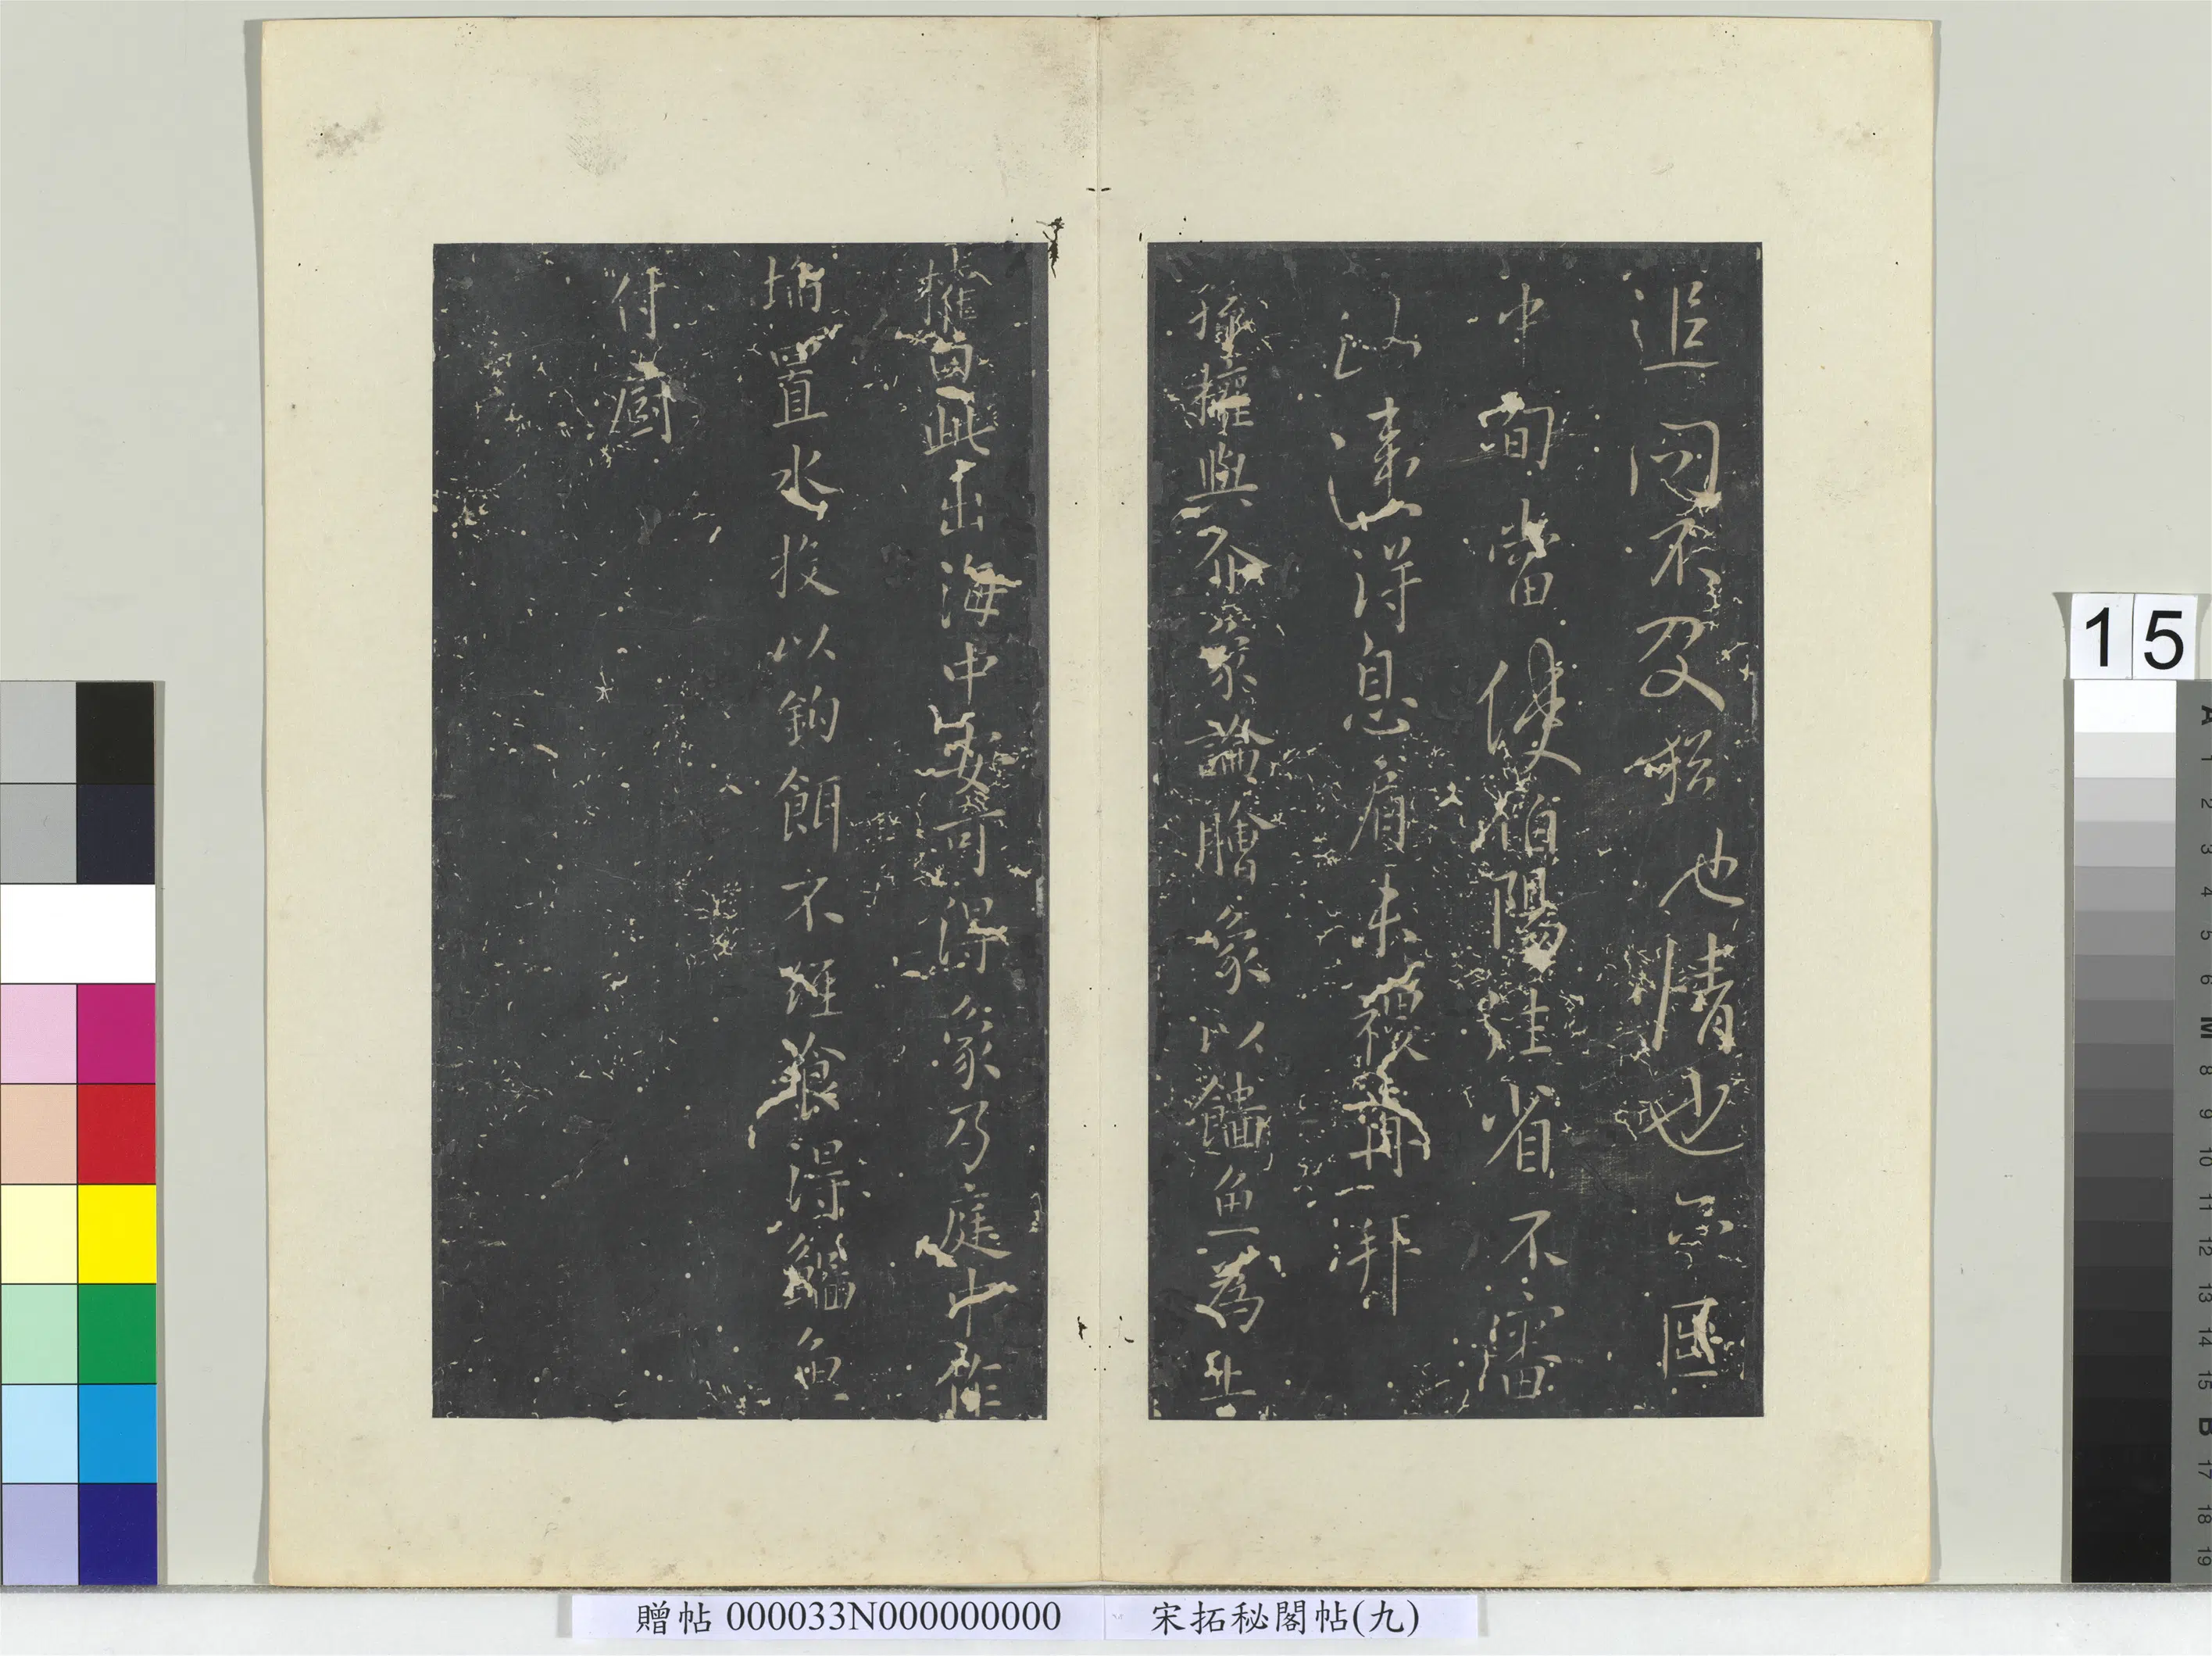 追問不及經也情也無匡
中朝當使伯陽進省不審
以達得息肩未複冉一拜
孫權與介象論膾象以鯔魚為上
權曰此出海中安可得象乃庭中作
埳置水投以鉤餌不經飡得鯔魚
付廚
15
A 1 2 3 4 5 6 M 8 9 10 11 12 13 14 15 B 17 18 19
贈帖 000033N000000000
宋拓秘閣帖(九)